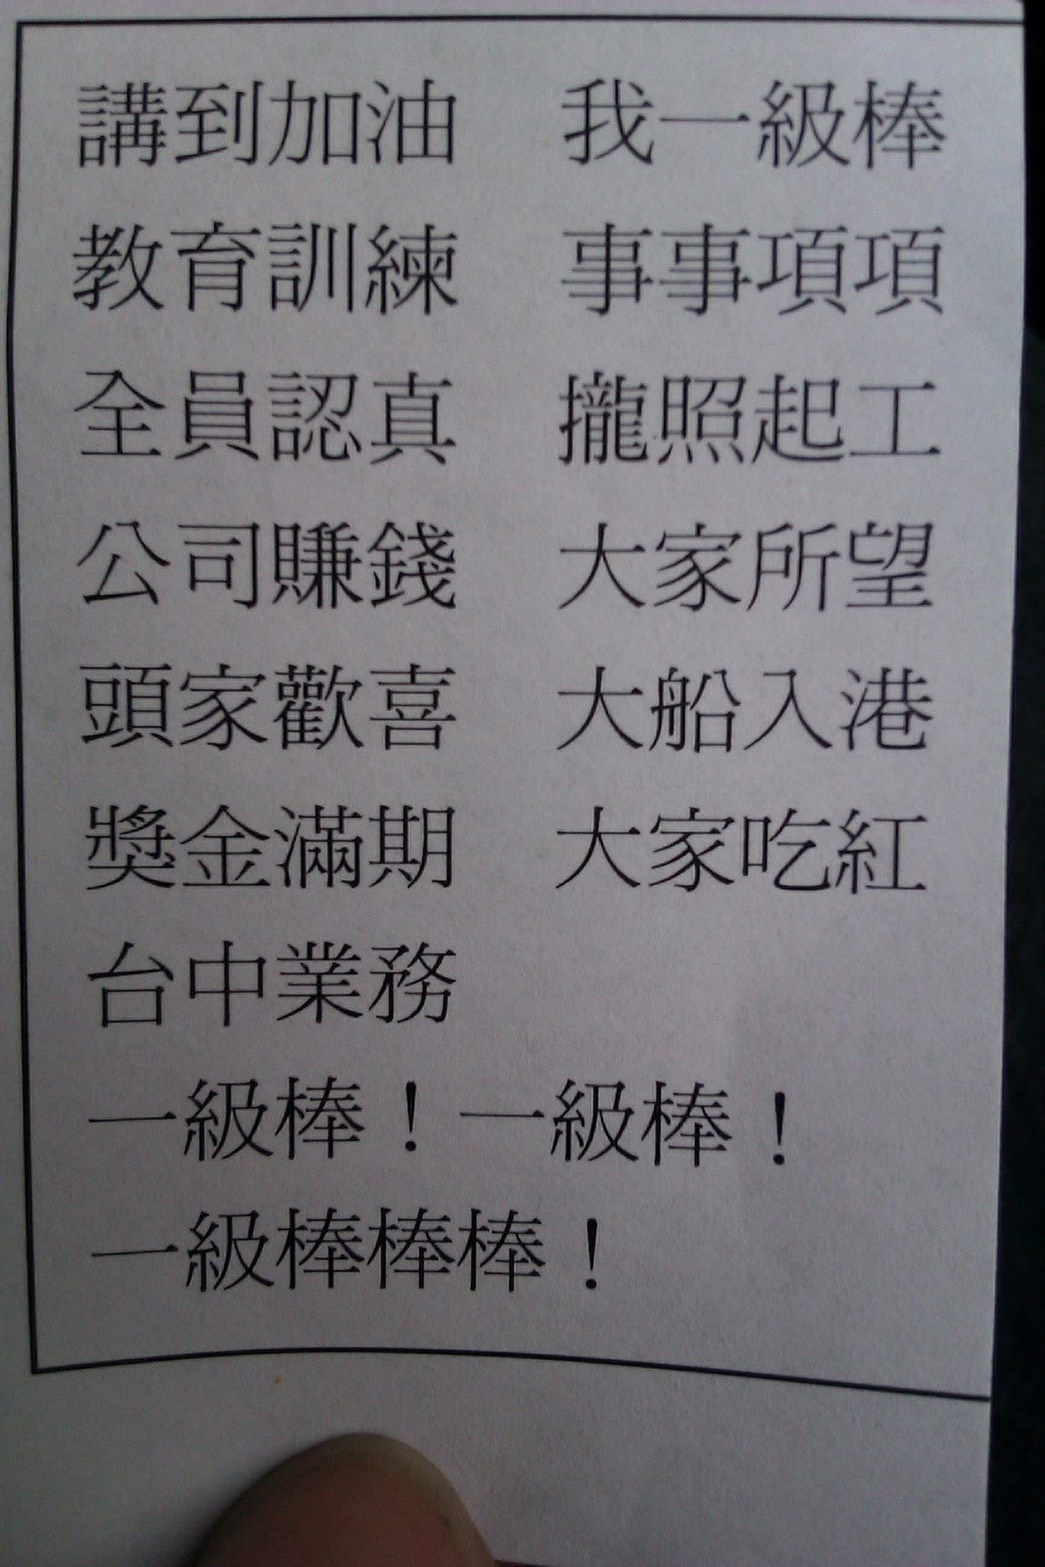 講到加油　我一級棒
教育訓練　事事項項
全員認真　攏照起工
公司賺錢　大家所望
頭家歡喜　大船入港
獎金滿期　大家吃紅
台中業務
一級棒！一級棒！
一級棒棒棒！